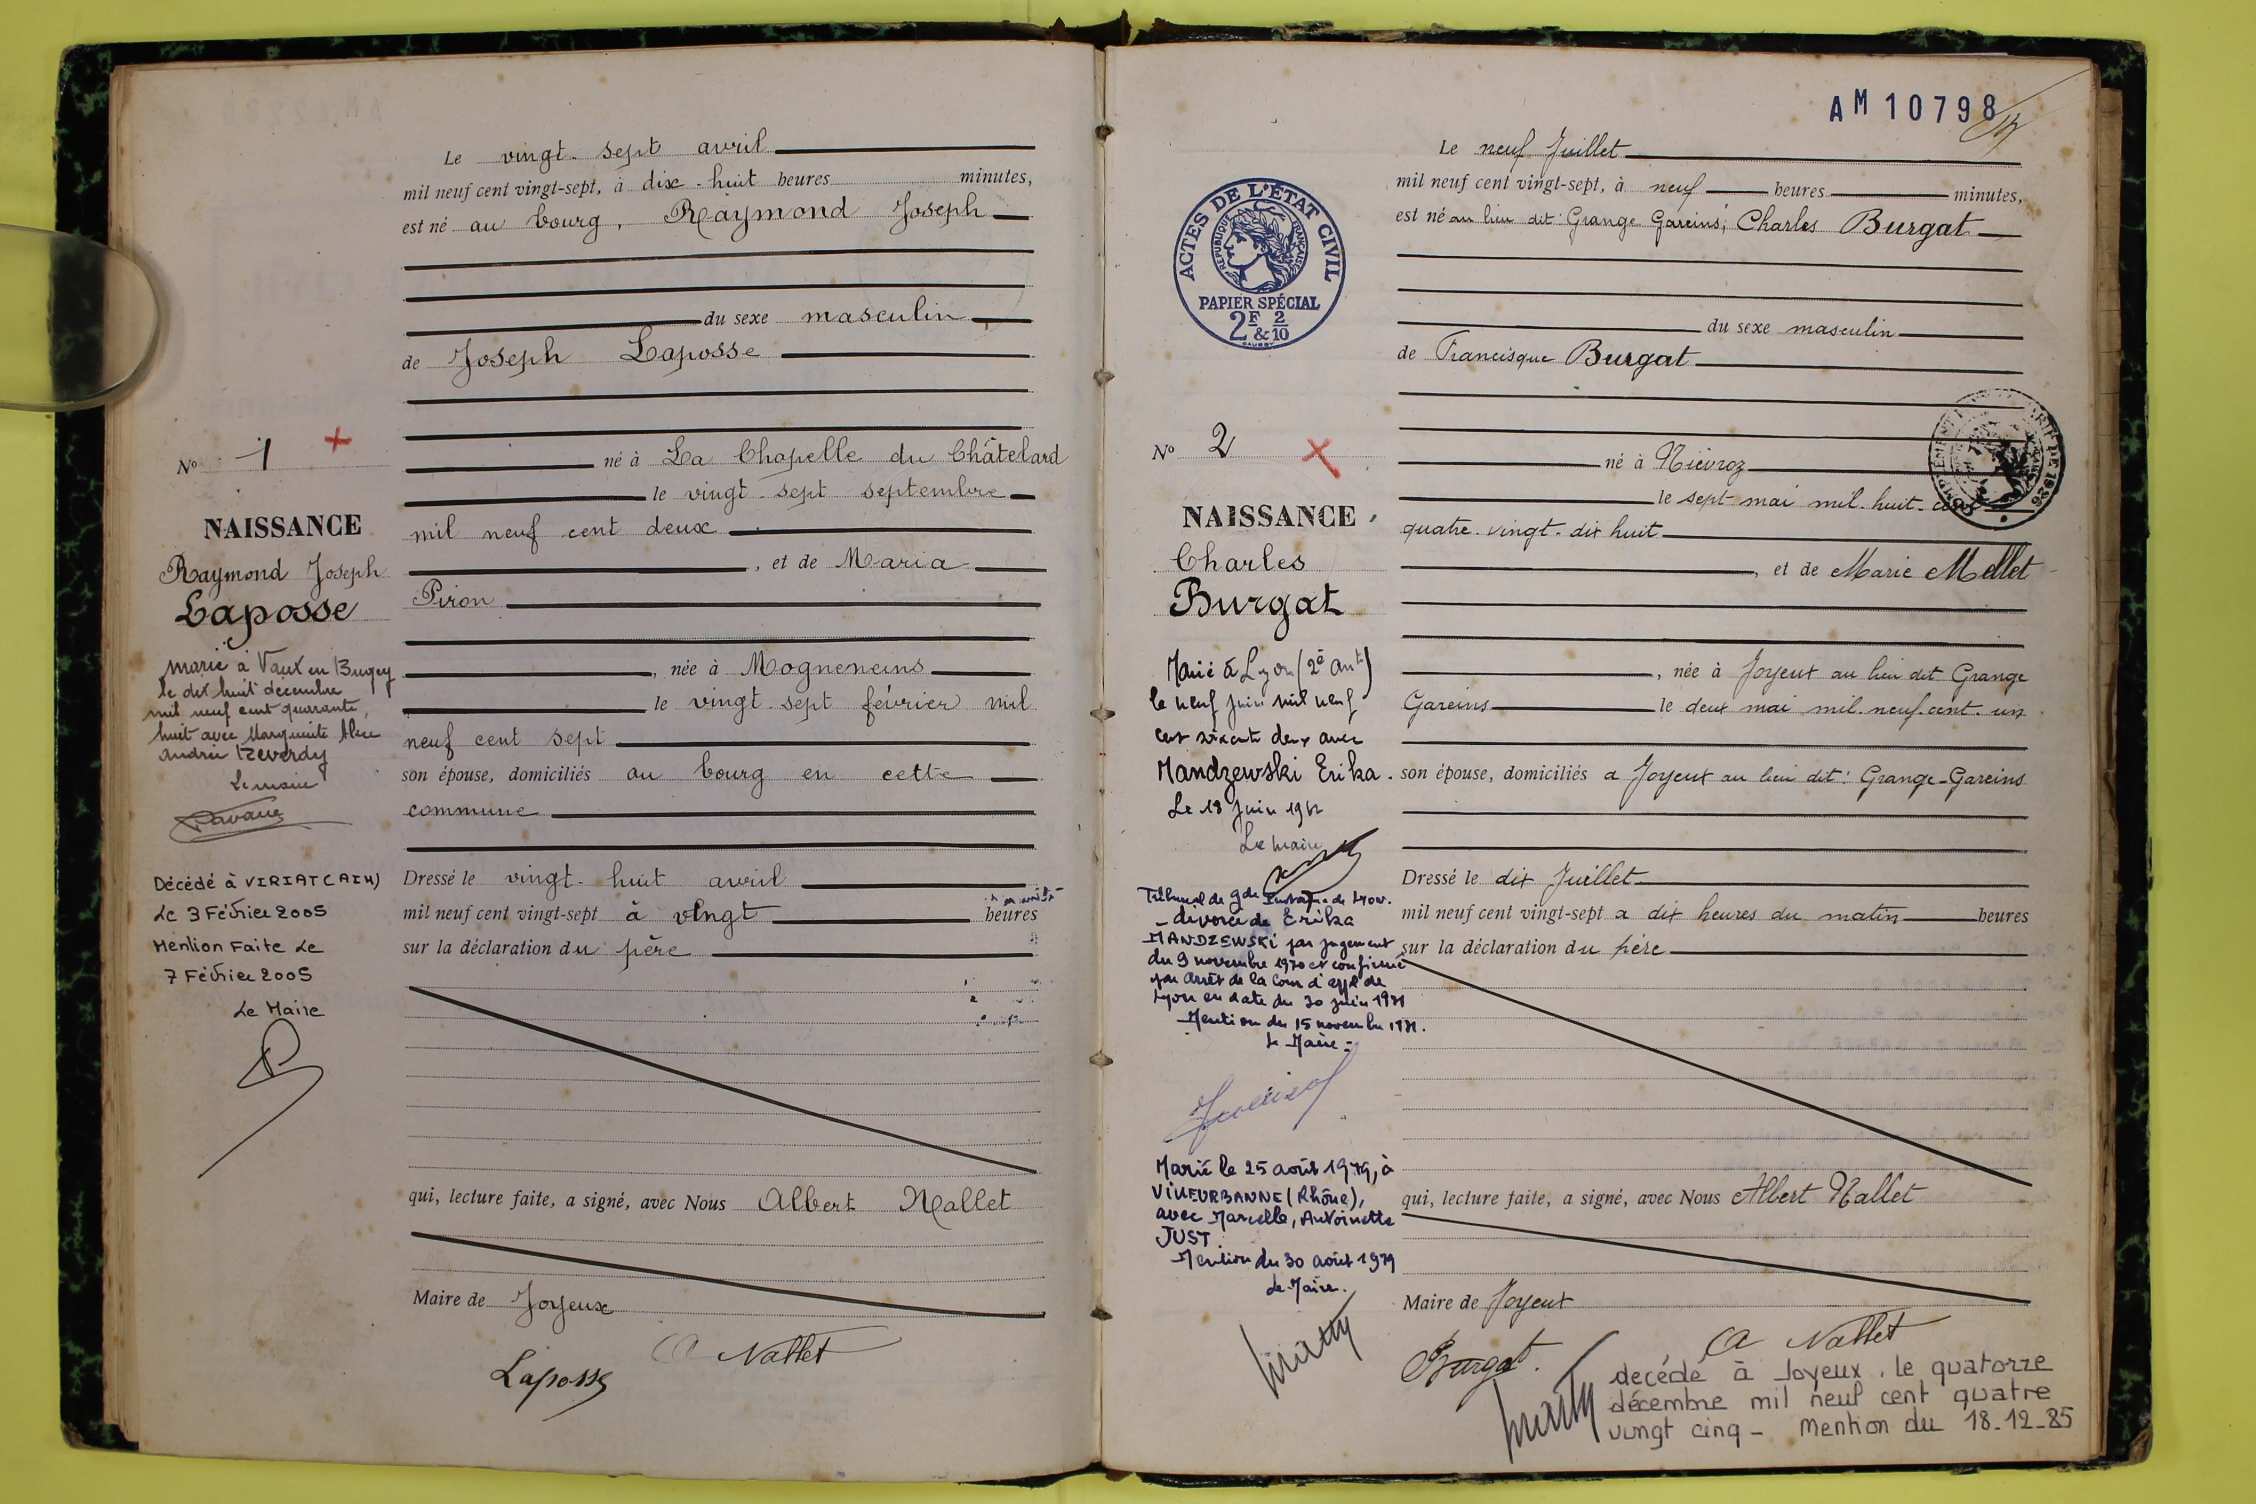 Le vingt-sept avril
mil neuf cent vingt-sept, à dix-huit heures minutes,
est né au bourg, Raymond Joseph
du sexe masculin
de Joseph Laposse
né à La Chapelle du Châtelard
le vingt-sept septembre
mil neuf cent deux
, et de Maria
Piron
, née à Mogneneins
le vingt-sept février mil
neuf cent sept
son épouse, domiciliés au bourg en cette
commune
Dressé le vingt-huit avril
mil neuf cent vingt-sept à vingt heures
sur la déclaration du père
qui, lecture faite, a signé, avec Nous Albert Nallet
Maire de Joyeux
A Nallet
Laposse
No 1
NAISSANCE
Raymond Joseph
Laposse
marié à Vaux en Bugey
le dix huit décembre
mil neuf cent quarante
huit avec Marguerite
Andrée Reverdy
Le maire
Décédé à VIRIAT (AIN)
Le 3 Février 2005
Mention Faite Le
7 Février 2005
Le Maire
AM 10798
ACTES DE L'ÉTAT CIVIL
RÉPUBLIQUE FRANÇAISE
PAPIER SPÉCIAL
2F & 2/10
Le neuf Juillet
mil neuf cent vingt-sept, à neuf heures minutes,
est né au lieu dit: Grange Gareins, Charles Burgat
du sexe masculin
de Francisque Burgat
né à Niévroz
le sept mai mil-huit-cent
quatre-vingt-dix huit
, et de Marie Mollet
, née à Joyeux au lieu dit Grange
Gareins le deux mai mil-neuf-cent-un
son épouse, domiciliés à Joyeux au lieu dit: Grange-Gareins
Dressé le dix Juillet
mil neuf cent vingt-sept à dix heures du matin heures
sur la déclaration du père
qui, lecture faite, a signé, avec Nous Albert Nallet
Maire de Joyeux
A Nallet
Burgat.
decédé à Joyeux. le quatorze
décembre mil neuf cent quatre
vingt cinq - Mention du 18-12-85
No 2
NAISSANCE
Charles
Burgat
Marié à Lyon (2e arrt)
le neuf juin mil neuf
cent soixante deux avec
Mandzewski Erika.
Le 18 Juin 1962
Le maire
Tribunal de gde Instance de Lyon.
- divorcé de Erika
MANDZEWSKI par jugement
du 9 novembre 1970 et confirmé
par arrêt de la Cour d'appel de
Lyon en date du 30 juin 1971
Mention du 15 novembre 1971.
Le Maire
Marié le 25 août 1979, à
VILLEURBANNE (Rhône),
avec Marcelle, Antoinette
JUST.
Mention du 30 août 1979
Le Maire.